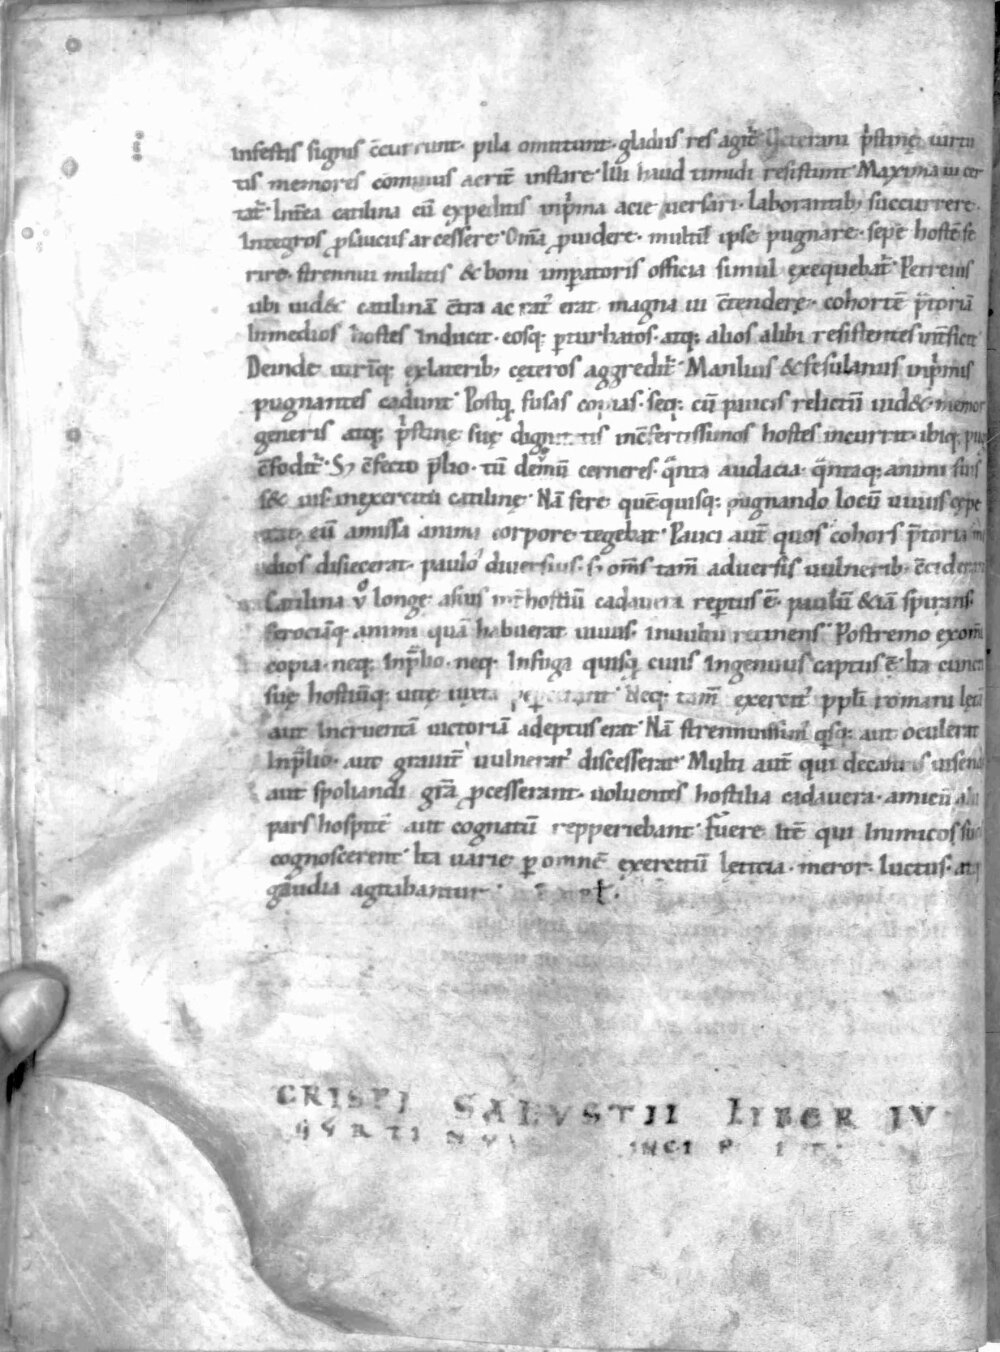 infestis signis c̄currunt· pila omittunt· gladiis res agit᷑ Veterani p̾stinę uirtu
tis memores cominus acrit̄ instare· Illi haud timidi resistunt· Maxima ui cer
tat᷑· Int̄ea catilina cū expeditis inp̾ma acie uersari· laborantib; succurrere·
Integros ꝓsauciis arcessere· Om̄a ꝓuidere· multū ipse pugnare· sepe hostē fe
rire· strennui militis & boni imꝑatoris officia simul exequebat᷑· Petreius
ubi uid& catilinā c̄tra ac rat᷑ erat magna ui c̄tendere· cohortē p̄toriā
Inmedios hostes Inducit· eosq; ꝑturbatos· atq; alios alibi resistentes int̄ficit
Deinde utrīq; exlaterib; cęteros aggredit᷑· Manlius & fesulanus inp̾mis
pugnantes cadunt· Postq̄ fusas copias· seq; cū paucis relictū uid& memor
generis atq; p̾stinę suę dignitatis inc̄fertissimos hostes incurrit· ibiq; pug
c̄fodit᷑· S; c̄fecto p̄lio· tū demū cerneres· q̄nta audacia· q̄ntaq; animi fuis
s& uis· inexercitu catilinę· Nā fere quēquisq; pugnando locū uiuus cępe
rat· eū amissa anima corpore tegebat· Pauci aut̄ quos cohors p̄toria
disiecerat· paulo diuersius· s; om̄s tam̄ aduersis uulnerib; c̄ciderant
Catilina ū̊ longe asuis int̄ hostiū cadauera reꝑtus ē· paulū &iā spirans·
ferociāq; animi quā habuerat uiuus· inuultu retinens· Postremo exom̄i
copia· neq; Inp̄lio· neq; Infuga quisq̄ ciuis Ingenuus captus ē· Ita cuncti
suę hostiūq; uitę iuxta peꝑcerant· Neq; tam̄ exercit᷑ ppl̄i romani lętā
aut Incruentā uictoriā adeptus erat· Nā strennuissim᷑ q̾sq; aut occiderat
Inp̄lio· aut grauit̄ uulnerat᷑ discesserat· Multi aut̄ qui decastris uisendi
aut spoliandi gr̄a ꝓcesserant· uoluentes hostilia cadauera· amicū alii
pars hospitē aut cognatū repperiebant· Fuere Itē qui Inimicos suos
cognoscerent· Ita uarie ꝑ omnē exercitū lęticia· meror· luctus· atq;
gaudia agitabantur·
CRISPI SALVSTII LIBER IV
GVRTINVS INCIPIT·